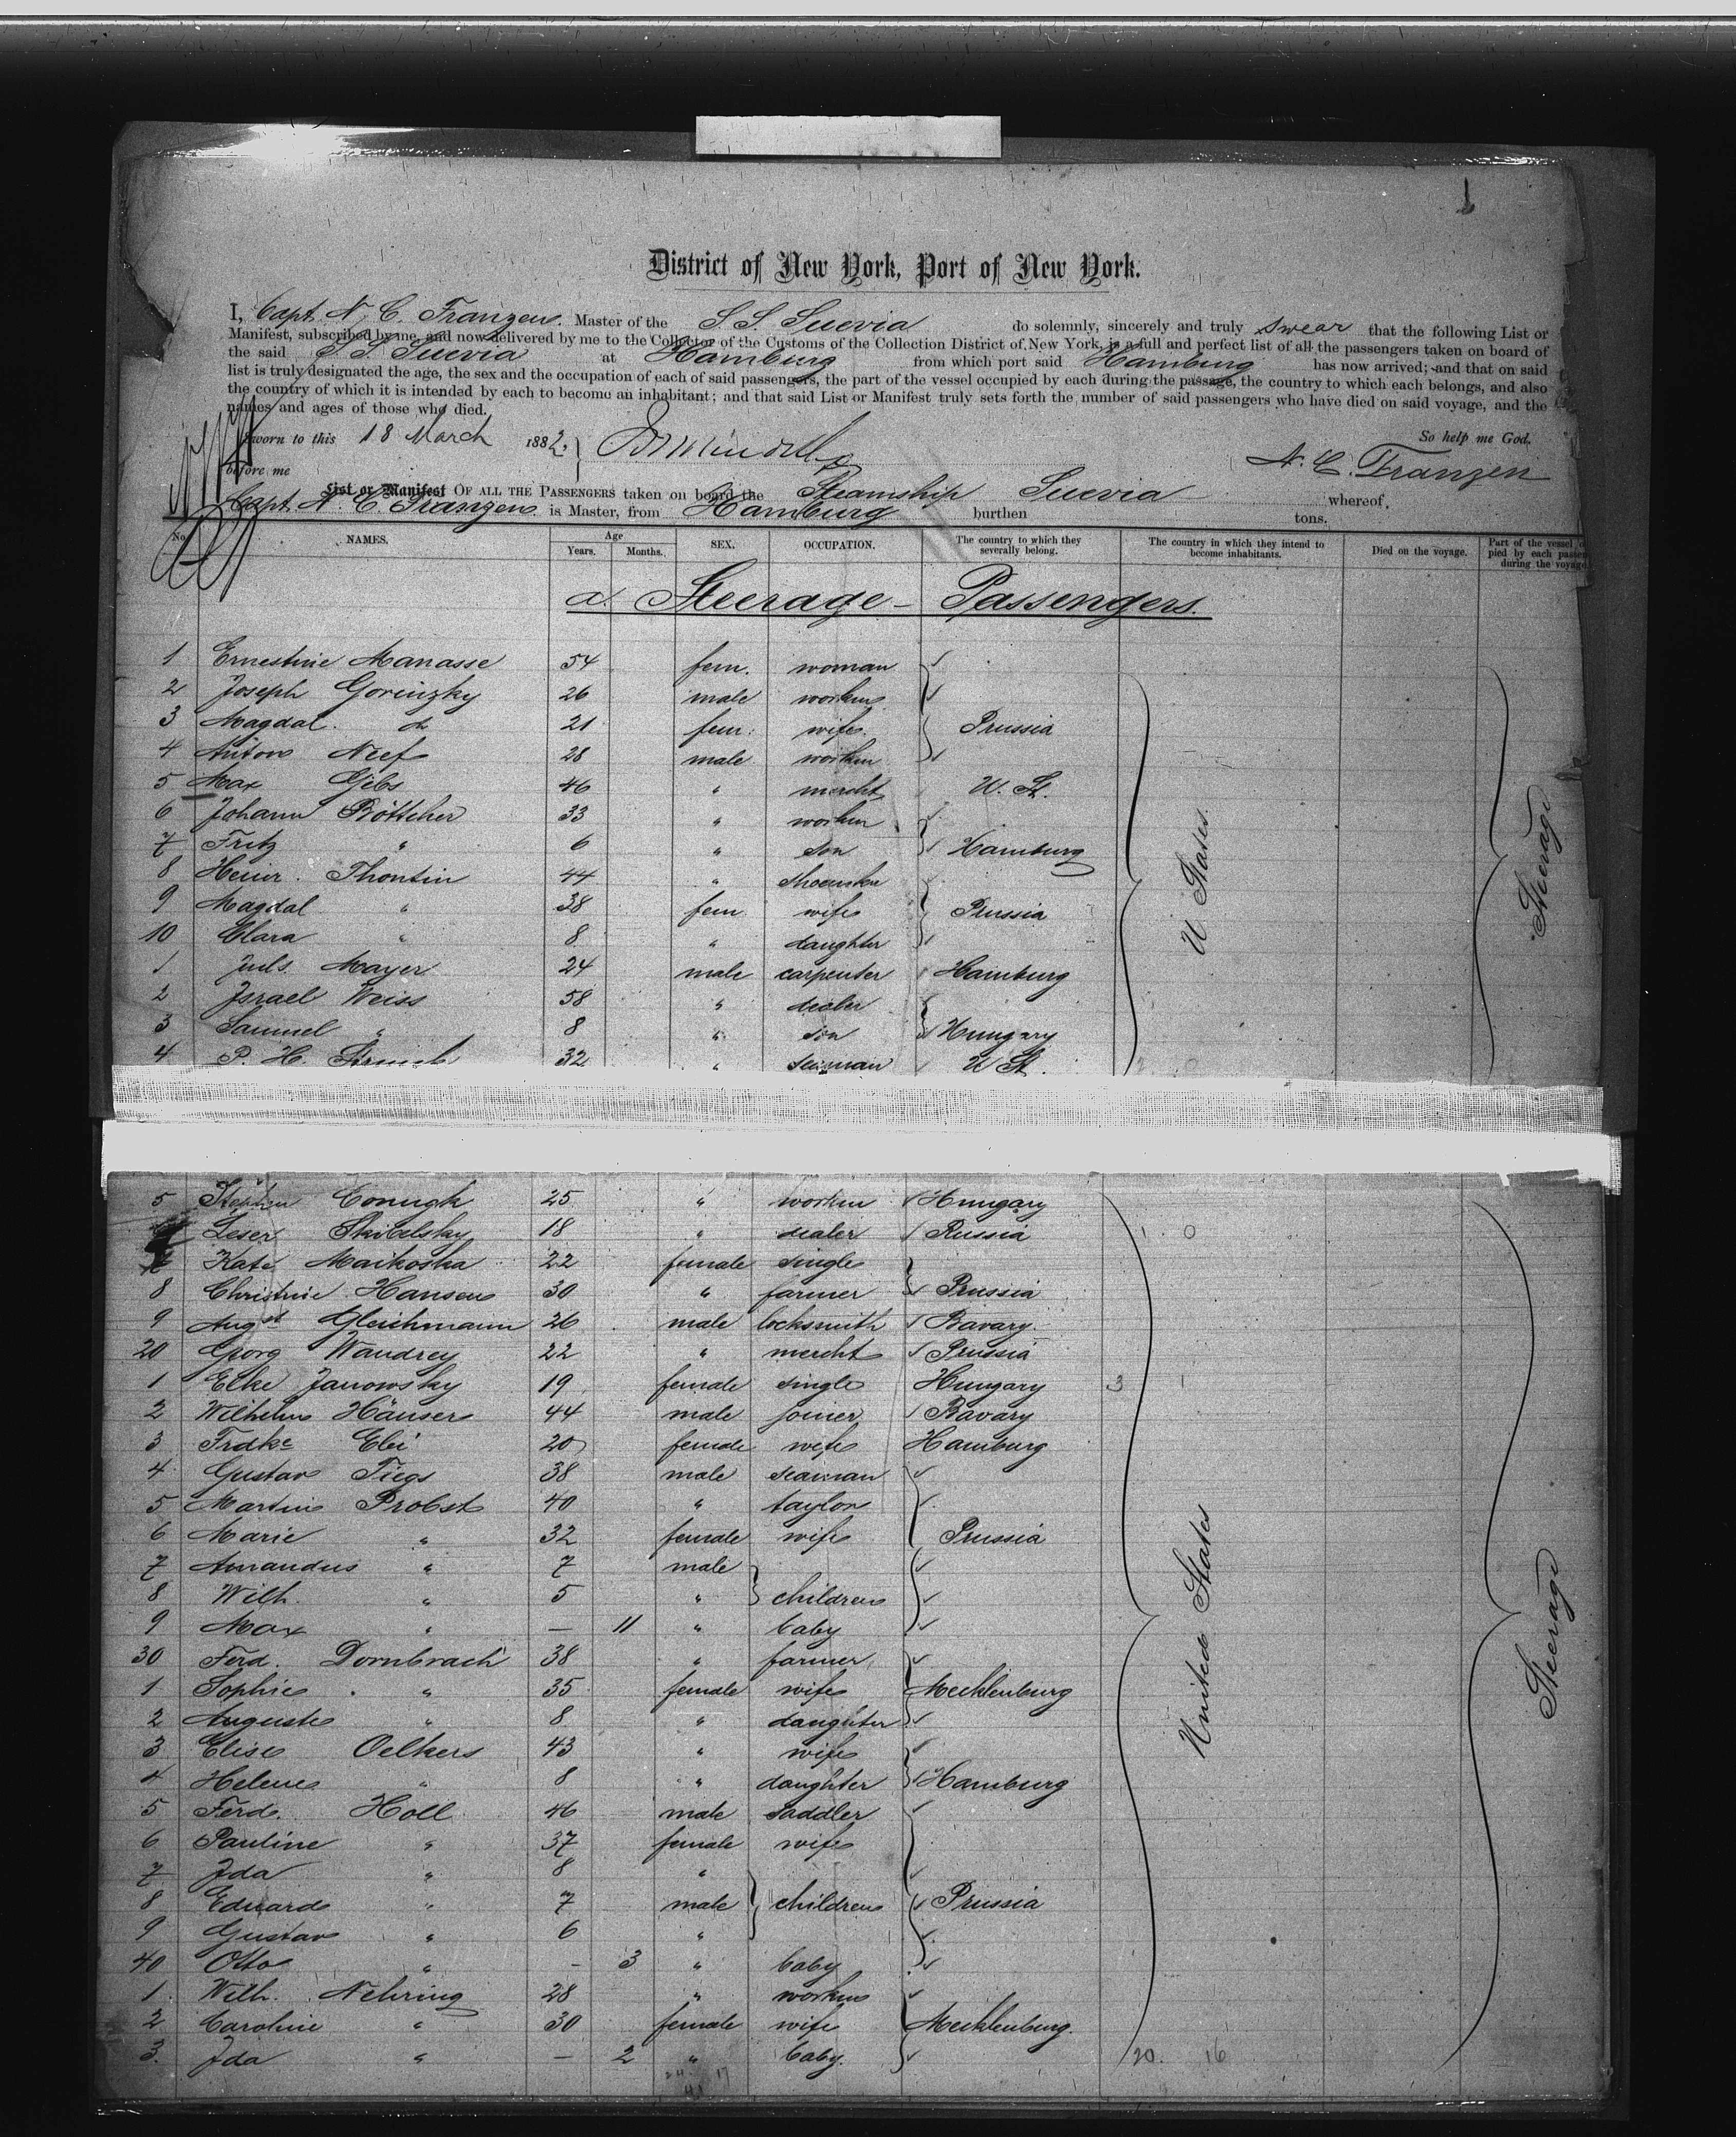 1
District of New York, Port of New York.
I, Capt. N. C. Franzen. Master of the S. S. Suevia do solemnly, sincerely and truly swear that the following List or
Manifest, subscribed by me, and now delivered by me to the Collector of the Customs of the Collection District of New York, is a full and perfect list of all the passengers taken on board of
the said S. S. Suevia at Hamburg from which port said Hamburg has now arrived; and that on said
list is truly designated the age, the sex and the occupation of each of said passengers, the part of the vessel occupied by each during the passage, the country to which each belongs, and also
the country of which it is intended by each to become an inhabitant; and that said List or Manifest truly sets forth the number of said passengers who have died on said voyage, and the
names and ages of those who died.
Sworn to this 18 March 1882. So help me God.
before me N. C. Franzen
List or Manifest OF ALL THE PASSENGERS taken on board the Steamship Suevia whereof
Capt. N. C. Franzen is Master, from Hamburg burthen tons.
No. NAMES. Age Years. Months. SEX. OCCUPATION. The country to which they severally belong. The country in which they intend to become inhabitants. Died on the voyage. Part of the vessel pied by each during the voyage
a. Steerage - Passengers.
1 Ernestine Manasse 54 fem. woman
2 Joseph Gorinzky 26 male workm
3 Magdal. do 21 fem. wife Prussia
4 Anton Neef 28 male workm
5 Max Gibs 46 " mercht U. St.
6 Johann Böttcher 33 " workm
7 Fritz " 6 " son Hamburg
8 Heinr. Thontin 44 " shoemkr
9 Magdal " 38 fem wife Prussia
10 Clara " 8 " daughter
1 Juls. Mayer 24 male carpenter Hamburg
2 Israel Weiss 58 " dealer
3 Samuel " 8 " son Hungary
4 P. H. 32 " seaman U St.
U. States
Steerage
5 Stephan 25 " workm Hungary
Leser Skibelsky 18 " dealer Russia
Kate Maikoska 22 female single
8 Christine Hansen 30 " farmer Prussia
9 Augst Gleichmann 26 male locksmith Bavary
20 Georg Wandrey 22 " mercht Prussia
1 Elke Janowsky 19 female single Hungary 3
2 Wilhelm Häuser 44 male joiner Bavary
3 Frdke Elvi 20 female wife Hamburg
4 Gustav Tiegs 38 male seaman
5 Martin Probst 40 " taylor
6 Marie " 32 female wife Prussia
7 Amandus " 7 male
8 Wilh. " 5 " children
9 Max " — 11 " baby
30 Ferd. Dornbrach 38 " farmer
1 Sophie " 35 female wife Mecklenburg
2 Auguste " 8 " daughter
3 Elise Oelkers 43 " wife
4 Helene " 8 " daughter Hamburg
5 Ferd. Holl 46 male saddler
6 Pauline " 37 female wife
7 Ida " 8 "
8 Eduard " 7 male children Prussia
9 Gustav " 6 "
40 Otto " — 3 " baby
1 Wilh. Nehring 28 " workm
2 Caroline " 30 female wife Mecklenburg.
3. Ida " — 2 " baby.
20. 16
United States
Steerage